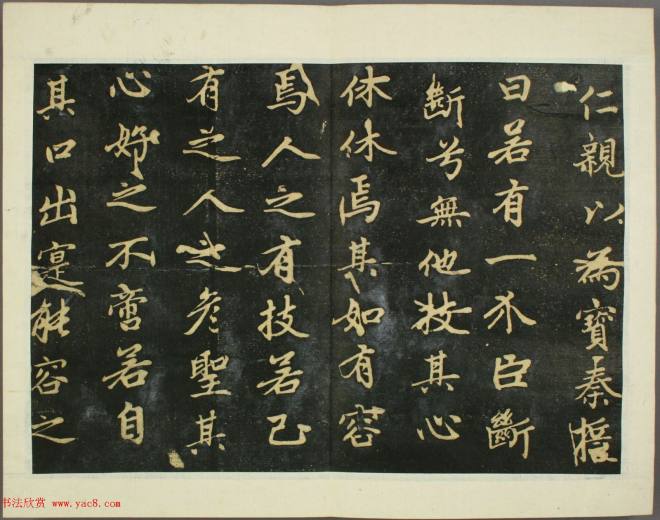 仁親以為寶秦誓
曰若有一介臣斷
斷兮無他技其心
休休焉其如有容
焉人之有技若己
有之人之彥聖其
心好之不啻若自
其口出寔能容之
书法欣赏 www.yac8.com